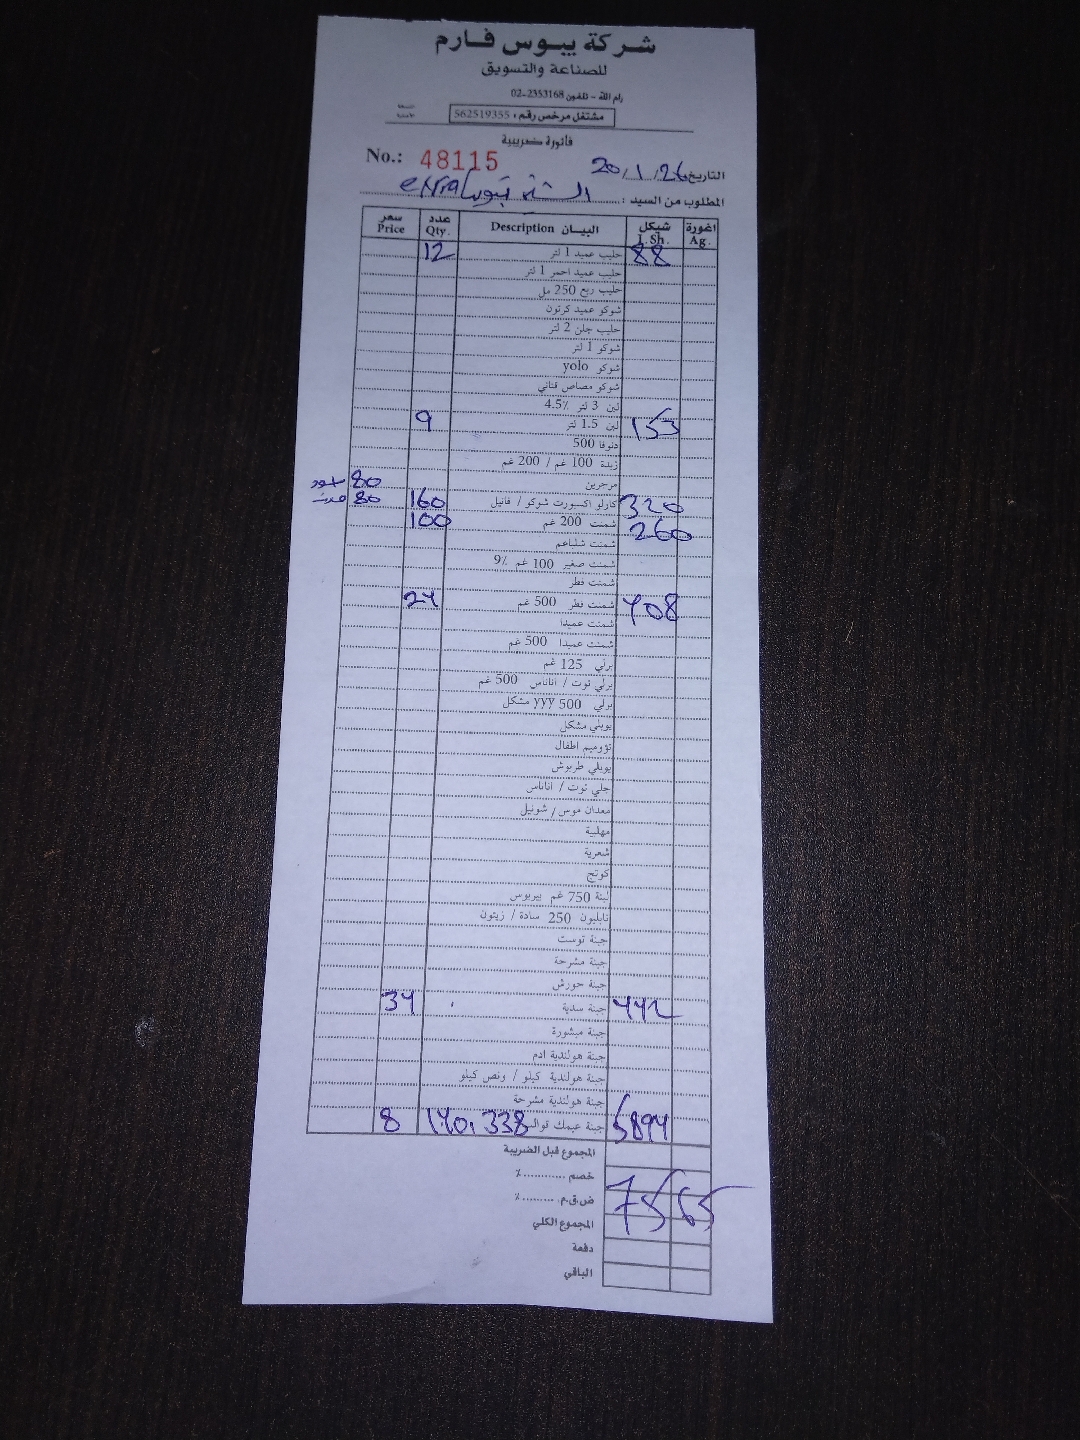 شركة يبوس فارم
للصناعة والتسويق
رام الله - تلفون 2353168-02
مشتغل مرخص رقم : 562519355
فاتورة ضريبية
No.: 48115
التاريخ 20/1/26
المطلوب من السيد : extra
سعر Price عدد Qty. البيـان Description شيكل I. Sh. اغورة Ag.
12 حليب عميد 1 لتر 88
حليب عميد احمر 1 لتر
حليب ربع 250 مل
شوكو عميد كرتون
حليب جلن 2 لتر
شوكو 1 لتر
شوكو yolo
شوكو مصاص قناني
لبن 3 لتر 4.5%
9 لبن 1.5 لتر 153
دنوفا 500
زبدة 100 غم / 200 غم
80 مرجرين
80 160 كارلو اكسبورت شوكو / فانيل 320
100 شمنت 200 غم 260
شمنت شلاعم
شمنت صغير 100 غم 9%
شمنت فطر
24 شمنت فطر 500 غم 408
شمنت عميدا
شمنت عميدا 500 غم
برلي 125 غم
برلي توت / اناناس 500 غم
برلي 500 yyy مشكل
يوبلي مشكل
تؤوميم اطفال
يوبلي طربوش
جلي توت / اناناس
معدان موس / شونيل
مهلبية
شعرية
كوتج
لبنة 750 غم بيربوس
نابليون 250 سادة / زيتون
جبنة توست
جبنة مشرحة
جبنة حورش
34 جبنة سدية 442
جبنة مبشورة
جبنة هولندية ادم
جبنة هولندية كيلو / ونص كيلو
جبنة هولندية مشرحة
8 140.338 جبنة عيمك قوالب 5894
المجموع قبل الضريبة
خصم ............ %
ض.ق.م. ......... %
المجموع الكلي 7565
دفعة
الباقي